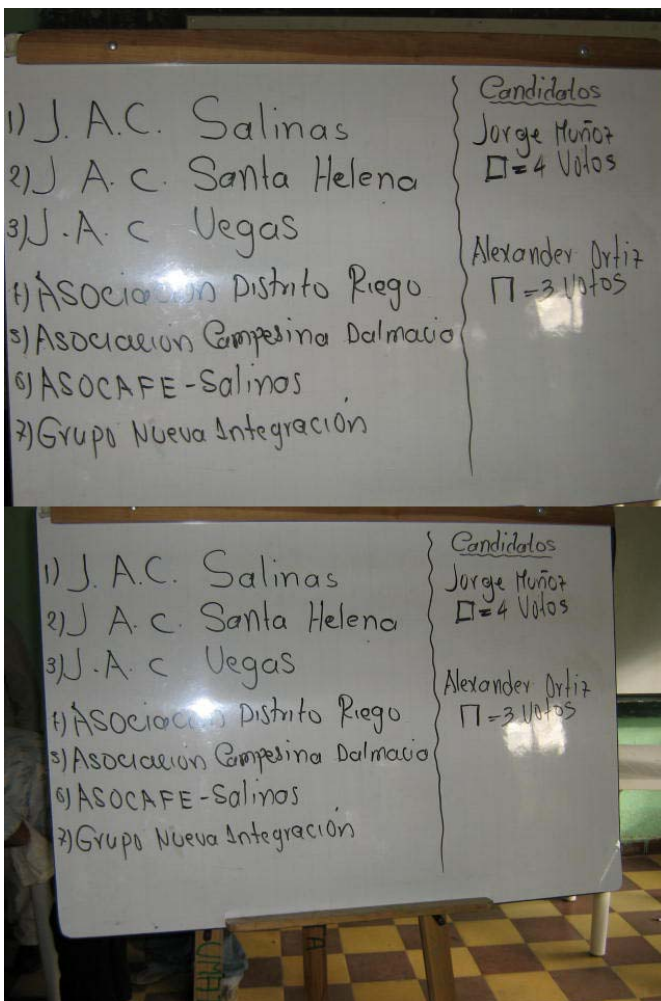 1) J. A.C. Salinas
2) J A. C. Santa Helena
3) J. A. C Vegas
4) ASociacion Distrito Riego
5) Asociacion Campesina Dalmacia
6) ASOCAFE-Salinas
7) Grupo Nueva Integración
Candidatos
Jorge Muñoz
□=4 Votos
Alexander Ortiz
Π-3 Votos
1) J. A.C. Salinas
2) J A. C. Santa Helena
3) J. A. C Vegas
4) ASociacion Distrito Riego
5) Asociacion Campesina Dalmacia
6) ASOCAFE-Salinas
7) Grupo Nueva Integración
Candidatos
Jorge Muñoz
□=4 Votos
Alexander Ortiz
Π-3 Votos